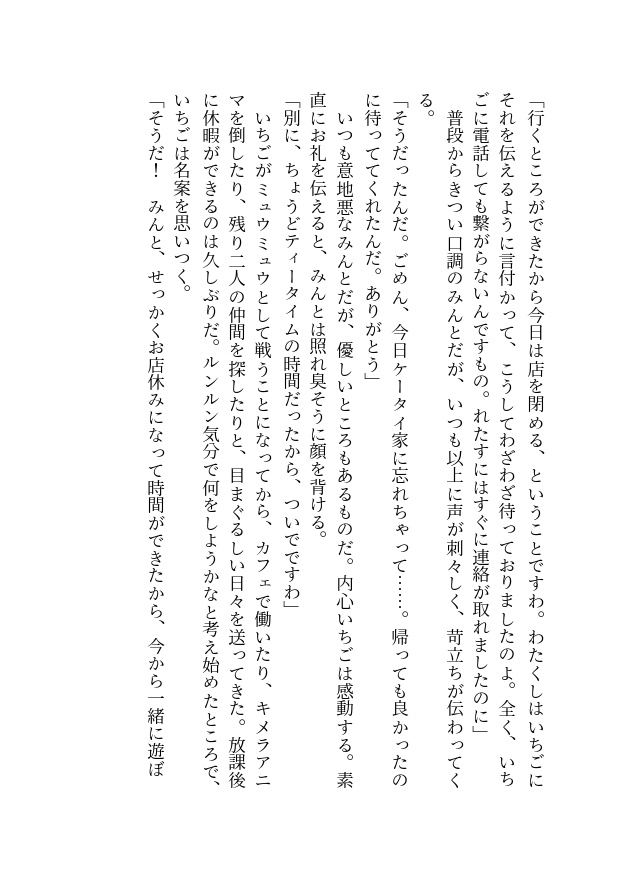 「行くところができたから今日は店を閉める、ということですわ。わたくしはいちごに
それを伝えるように言付かって、こうしてわざわざ待っておりましたのよ。全く、いち
ごに電話しても繋がらないんですもの。れたすにはすぐに連絡が取れましたのに」
　普段からきつい口調のみんとだが、いつも以上に声が刺々しく、苛立ちが伝わってく
る。
「そうだったんだ。ごめん、今日ケータイ家に忘れちゃって……。帰っても良かったの
に待っててくれたんだ。ありがとう」
　いつも意地悪なみんとだが、優しいところもあるものだ。内心いちごは感動する。素
直にお礼を伝えると、みんとは照れ臭そうに顔を背ける。
「別に、ちょうどティータイムの時間だったから、ついでですわ」
　いちごがミュウミュウとして戦うことになってから、カフェで働いたり、キメラアニ
マを倒したり、残り二人の仲間を探したりと、目まぐるしい日々を送ってきた。放課後
に休暇ができるのは久しぶりだ。ルンルン気分で何をしようかなと考え始めたところで、
いちごは名案を思いつく。
「そうだ！　みんと、せっかくお店休みになって時間ができたから、今から一緒に遊ぼ